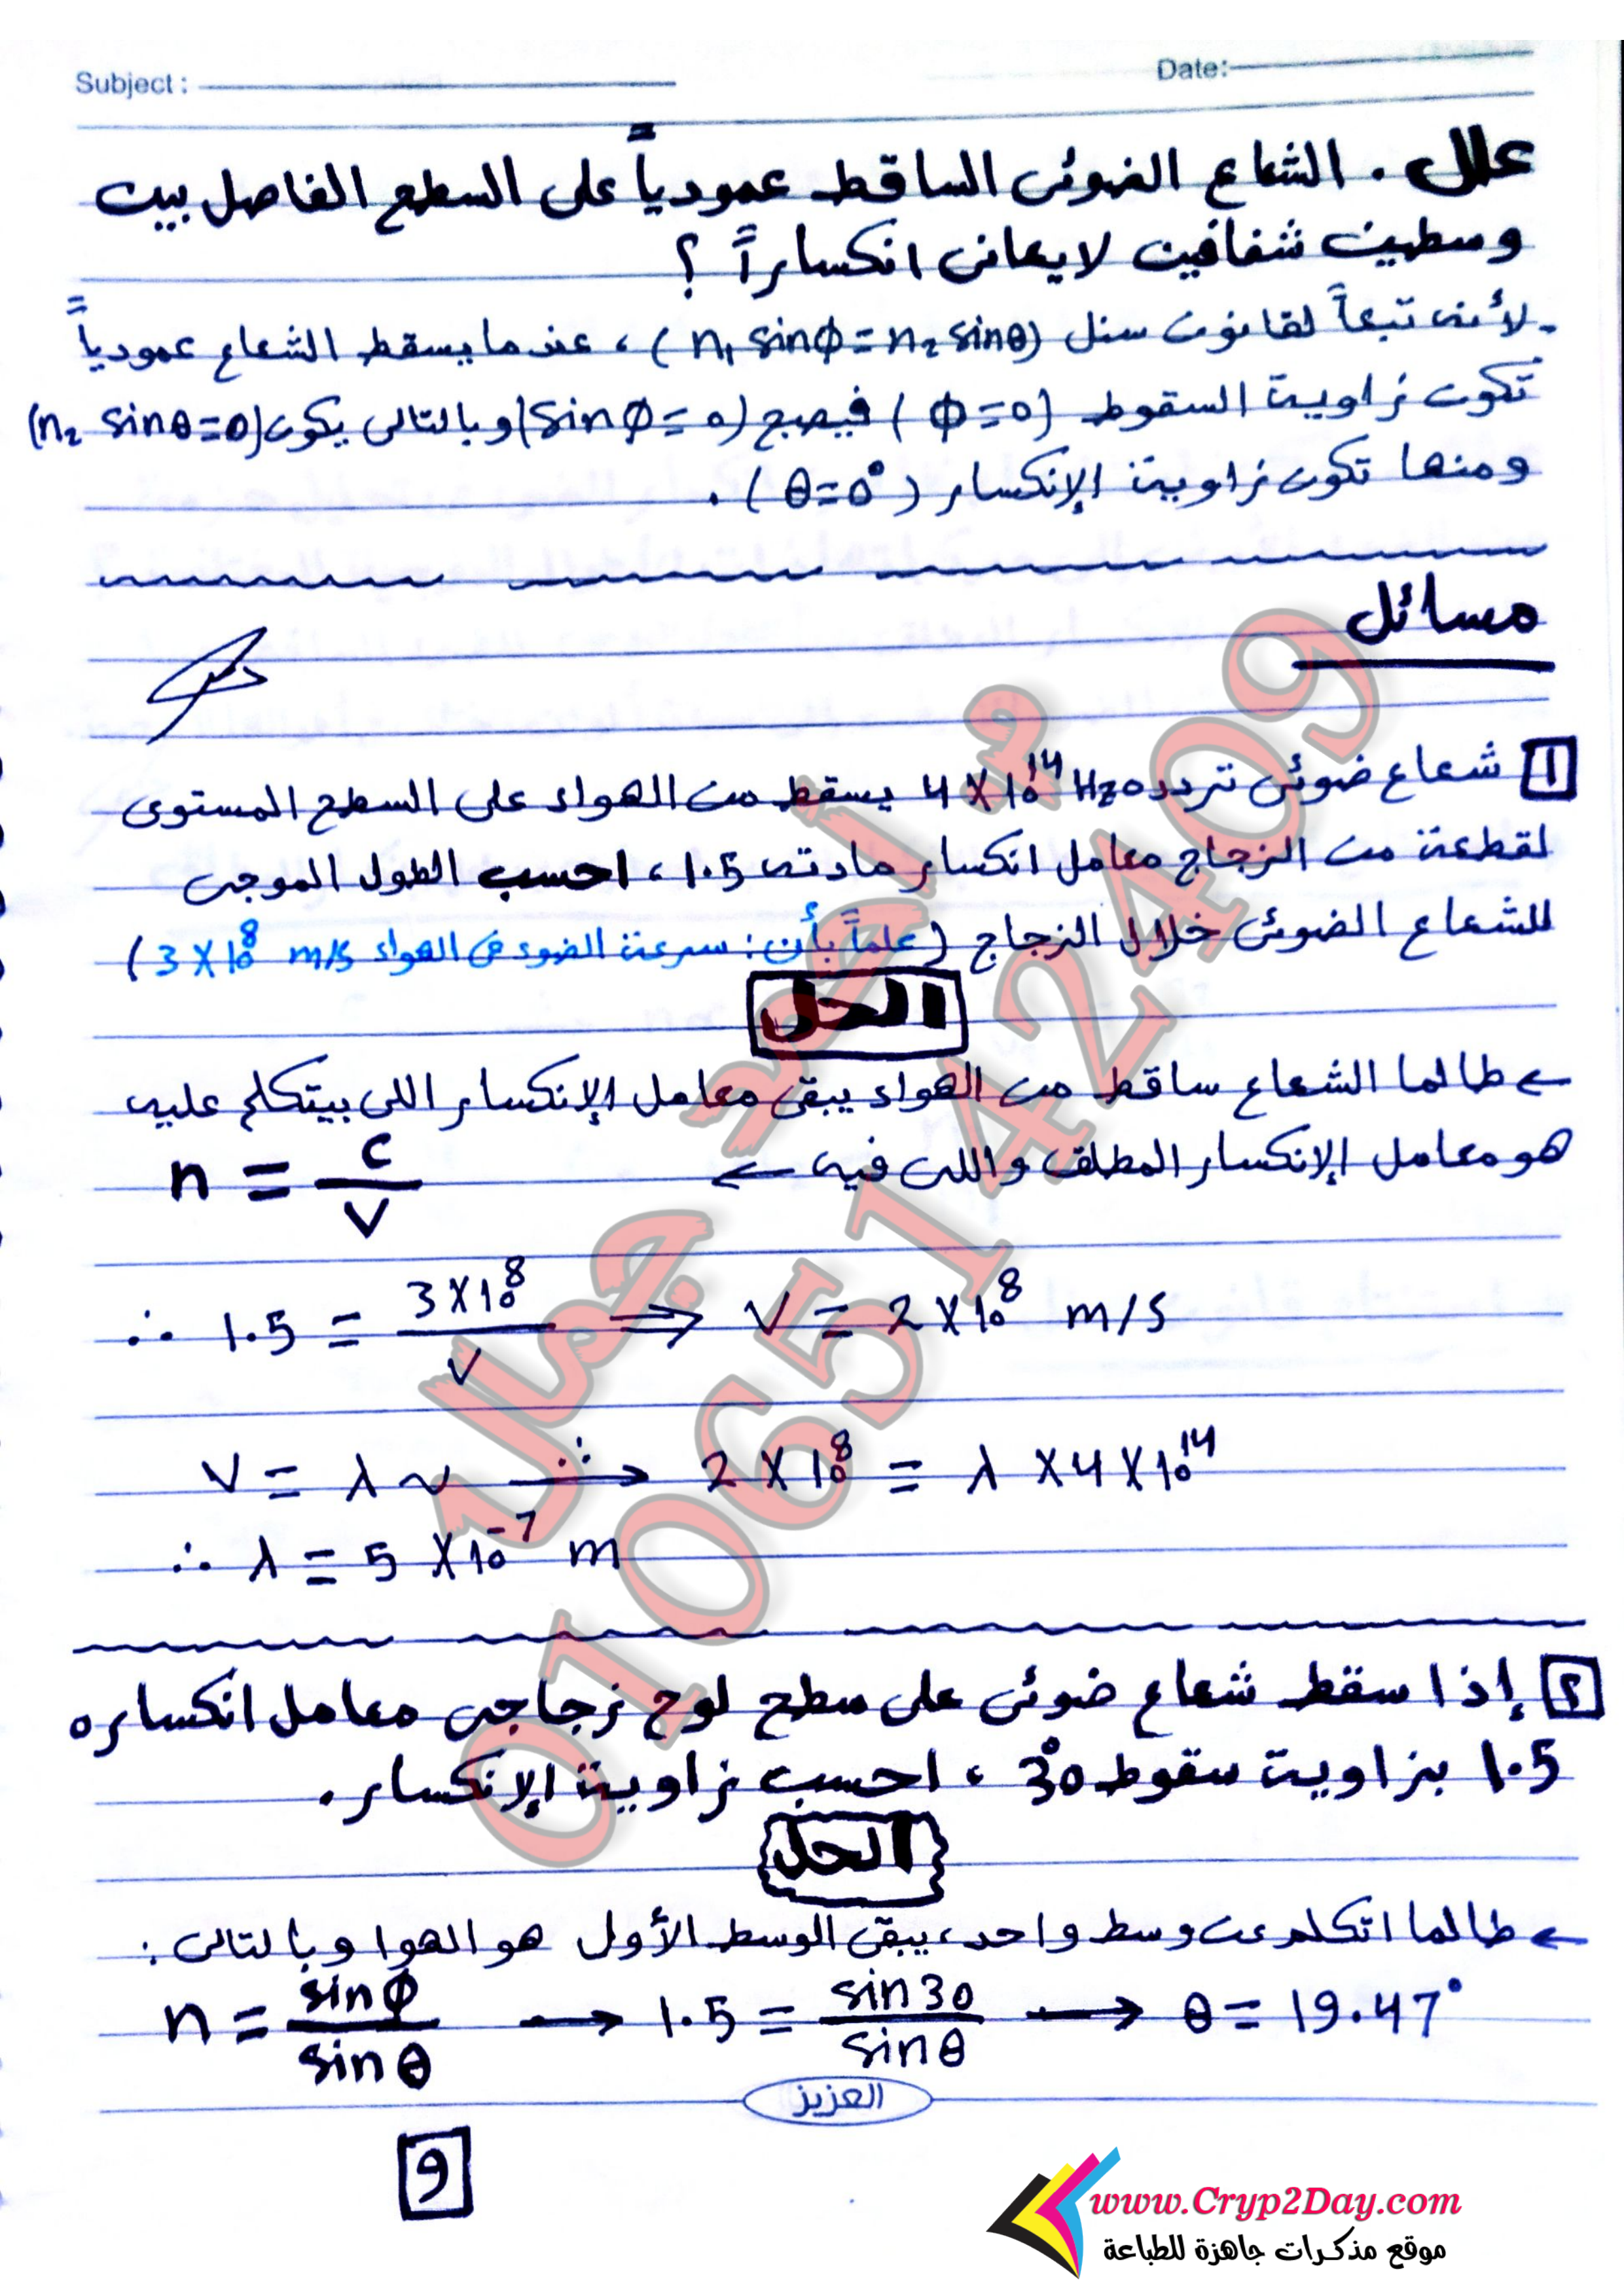 Subject :
Date:
علل . الشعاع الضوئى الساقط عمودياً على السطح الفاصل بين
وسطين شفافين لا يعانى انكساراً ؟
- لأنه تبعاً لقانون سنل (n₁ sinϕ = n₂ sinθ) ، عندما يسقط الشعاع عمودياً
تكون زاوية السقوط (ϕ=0) فيصبح (sinϕ=0) وبالتالى يكون (n₂ sinθ=0)
ومنها تكون زاوية الإنكسار (θ=0°) .
مسائل
1 شعاع ضوئى تردده 4 X 10¹⁴ Hz يسقط من الهواء على السطح المستوى
لقطعة من الزجاج معامل انكسار مادته 1.5 ، احسب الطول الموجى
للشعاع الضوئى خلال الزجاج (علماً بأن : سرعة الضوء فى الهواء 3 X 10⁸ m/s)
الحل
← طالما الشعاع ساقط من الهواء يبقى معامل الإنكسار اللى بيتكلم عليه
هو معامل الإنكسار المطلق واللى فيه ← n = c/V
∴ 1.5 = 3X10⁸/V ⟹ V = 2X10⁸ m/s
V = λ ν ∴→ 2 X 10⁸ = λ X 4 X 10¹⁴
∴ λ = 5 X 10⁻⁷ m
٢ إذا سقط شعاع ضوئى على سطح لوح زجاجى معامل انكساره
1.5 بزاوية سقوط 30° ، احسب زاوية الإنكسار .
الحل
← طالما اتكلم عن وسط واحد ، يبقى الوسط الأول هو الهوا وبالتالى :
n = sinϕ/sinθ → 1.5 = sin30/sinθ → θ = 19.47°
العزيز
9
م. أحمد جمال
01065142409
www.Cryp2Day.com
موقع مذكرات جاهزة للطباعة